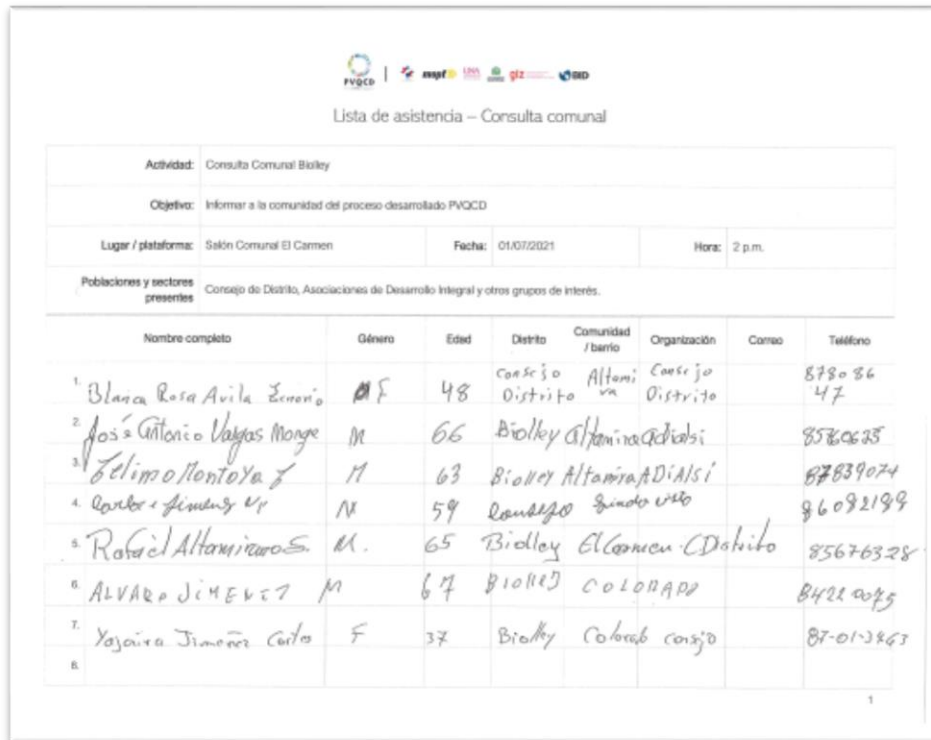 PVQCD mspf UNA giz BID
Lista de asistencia – Consulta comunal
Actividad: Consulta Comunal Biolley
Objetivo: Informar a la comunidad del proceso desarrollado PVQCD
Lugar / plataforma: Salón Comunal El Carmen Fecha: 01/07/2021 Hora: 2 p.m.
Poblaciones y sectores presentes Consejo de Distrito, Asociaciones de Desarrollo Integral y otros grupos de interés.
Nombre completo Género Edad Distrito Comunidad / barrio Organización Correo Teléfono
1. Blanca Rosa Avila F 48 Consejo Distrito Altamira Consejo Distrito 878086 47
2. José Antonio Vargas Monge M 66 Biolley Altamira
3. Felimo Montoya J M 63 Biolley Altamira ADiAlsi 87839074
4. Jimenez M 59 86082199
5. Rafael Altamirano S. M. 65 Biolley El Carmen C Distrito 85676328
6. ALVARO JIMENEZ M 67 Biolley COLORADO
7. Yajaira Jimenez F 37 Biolley 87-01-3463
8.
1